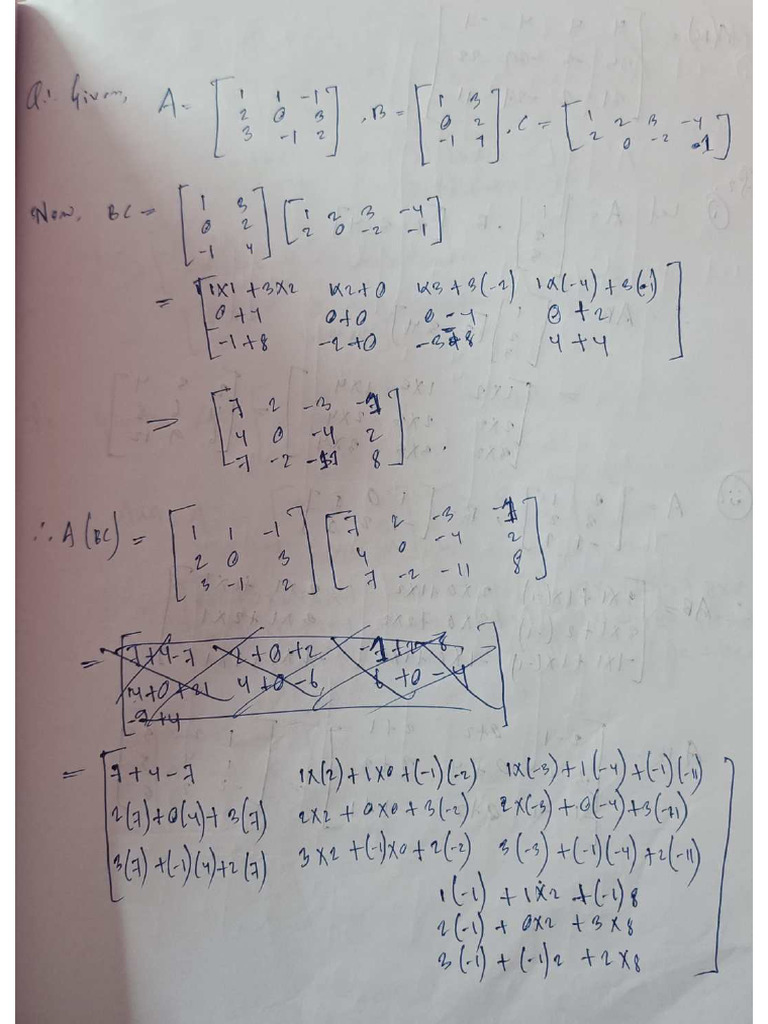 Q.1. Given, A = [1 1 -1 / 2 0 3 / 3 -1 2], B = [1 3 / 0 2 / -1 4], C = [1 2 3 -4 / 2 0 -2 1]
Now, BC = [1 3 / 0 2 / -1 4] [1 2 3 -4 / 2 0 -2 -1]
= [1x1 + 3x2 1x2+0 1x3 + 3(-2) 1x(-4) + 3(1)
0+4 0+0 0-4 0+2
-1+8 -2+0 -3+8 4+4]
= [7 2 -3 -1
4 0 -4 2
7 -2 -11 8].
∴ A(BC) = [1 1 -1 / 2 0 3 / 3 -1 2] [7 2 -3 -1 / 4 0 -4 2 / 7 -2 -11 8]
= [7+4-7 2+0+2 -1+2-8
14+0+21 4+0-6 6+0-4
-3+4]
= [7+4-7 1x(2)+1x0+(-1)(-2) 1x(-3)+1(-4)+(-1)(-11)
2(7)+0(4)+3(7) 2x2+0x0+3(-2) 2x(-3)+0(-4)+3(-11)
3(7)+(-1)(4)+2(7) 3x2+(-1)x0+2(-2) 3(-3)+(-1)(-4)+2(-11)
1(-1) + 1x2 + (-1)8
2(-1) + 0x2 + 3x8
3(-1) + (-1)2 + 2x8]